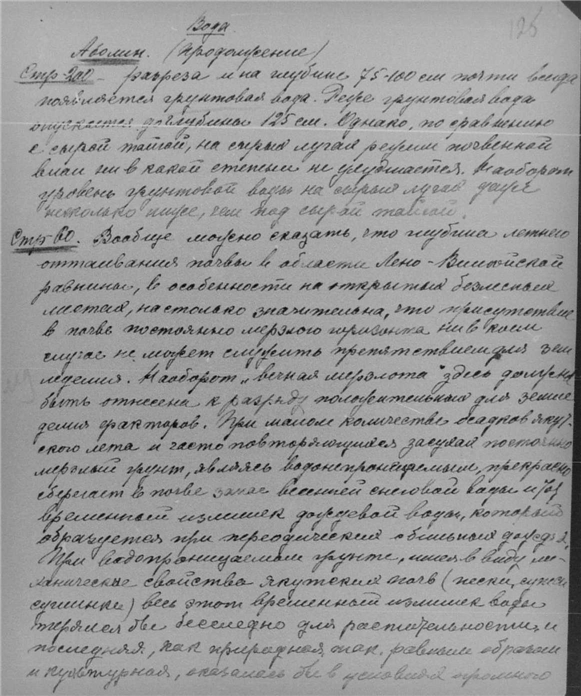 Вода
125
Аболин. (Продолжение)
Стр-200 – разреза и на глубине 75-100 см почти всегда
появляется грунтовая вода. Реже грунтовая вода
опускается до глубины 125 см. Однако, по сравнению
с сырой тайгой, на сырых лугах режим почвенной
влаги ни в какой степени не ухудшается. Наоборот
уровень грунтовой воды на сырых лугах даже
несколько ниже, чем под сырой тайгой.
Стр-60. Вообще можно сказать, что глубина летнего
оттаивания почвы в области Лено-Вилюйской
равнины, в особенности на открытых безлесных
местах, настолько значительна, что присутствие
в почве постоянно мерзлого горизонта ни в коем
случае не может служить препятствием для зем
леделия. Наоборот, „вечная мерзлота" здесь должна
быть отнесена к разряду положительных для земле
делия факторов. При малом количестве осадков якут-
ского лета и часто повторяющихся засухах постоянно
мерзлый грунт, являясь водонепроницаемым, прекрасно
сберегает в почве запас весенней снеговой воды и
временный излишек дождевой воды, который
образуется при периодических обильных дождях.
При водопроницаемом грунте, имея в виду, ме-
ханические свойства якутских почв (пески, супеси
суглинки) весь этот временный излишек воды
терялся бы бесследно для растительности и
последняя, как природная так, равным образом
и культурная, оказалась бы в условиях огромного